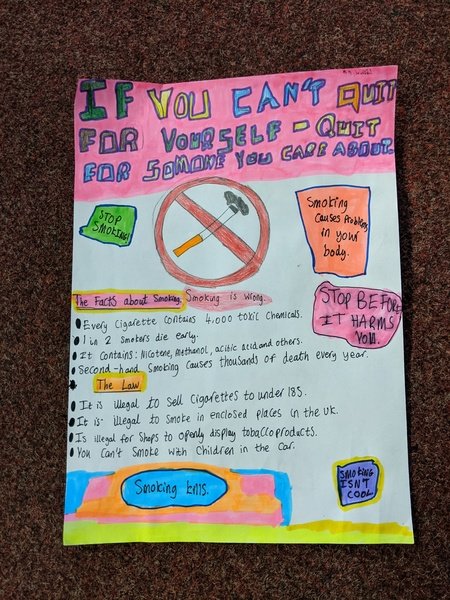 IF YOU CAN'T QUIT
FOR YOURSELF - QUIT
FOR SOMONE YOU CARE ABOUT.
STOP
SMOKING!
Smoking
causes problems
in your
body.
The Facts about Smoking. Smoking is wrong.
Every Cigarette contains 4,000 toxic chemicals.
1 in 2 smokers die early.
It contains: Nicotene, Methanol, acitic acid and others.
Second-hand Smoking causes thousands of death every year.
STOP BEFORE
IT HARMS
YOU.
The Law
It is illegal to Sell Cigarettes to under 18s.
It is illegal to Smoke in enclosed places in the UK.
Is illegal for Shops to openly display tobacco products.
You Can't Smoke with Children in the Car.
Smoking kills.
SMOKING
ISN'T
COOL